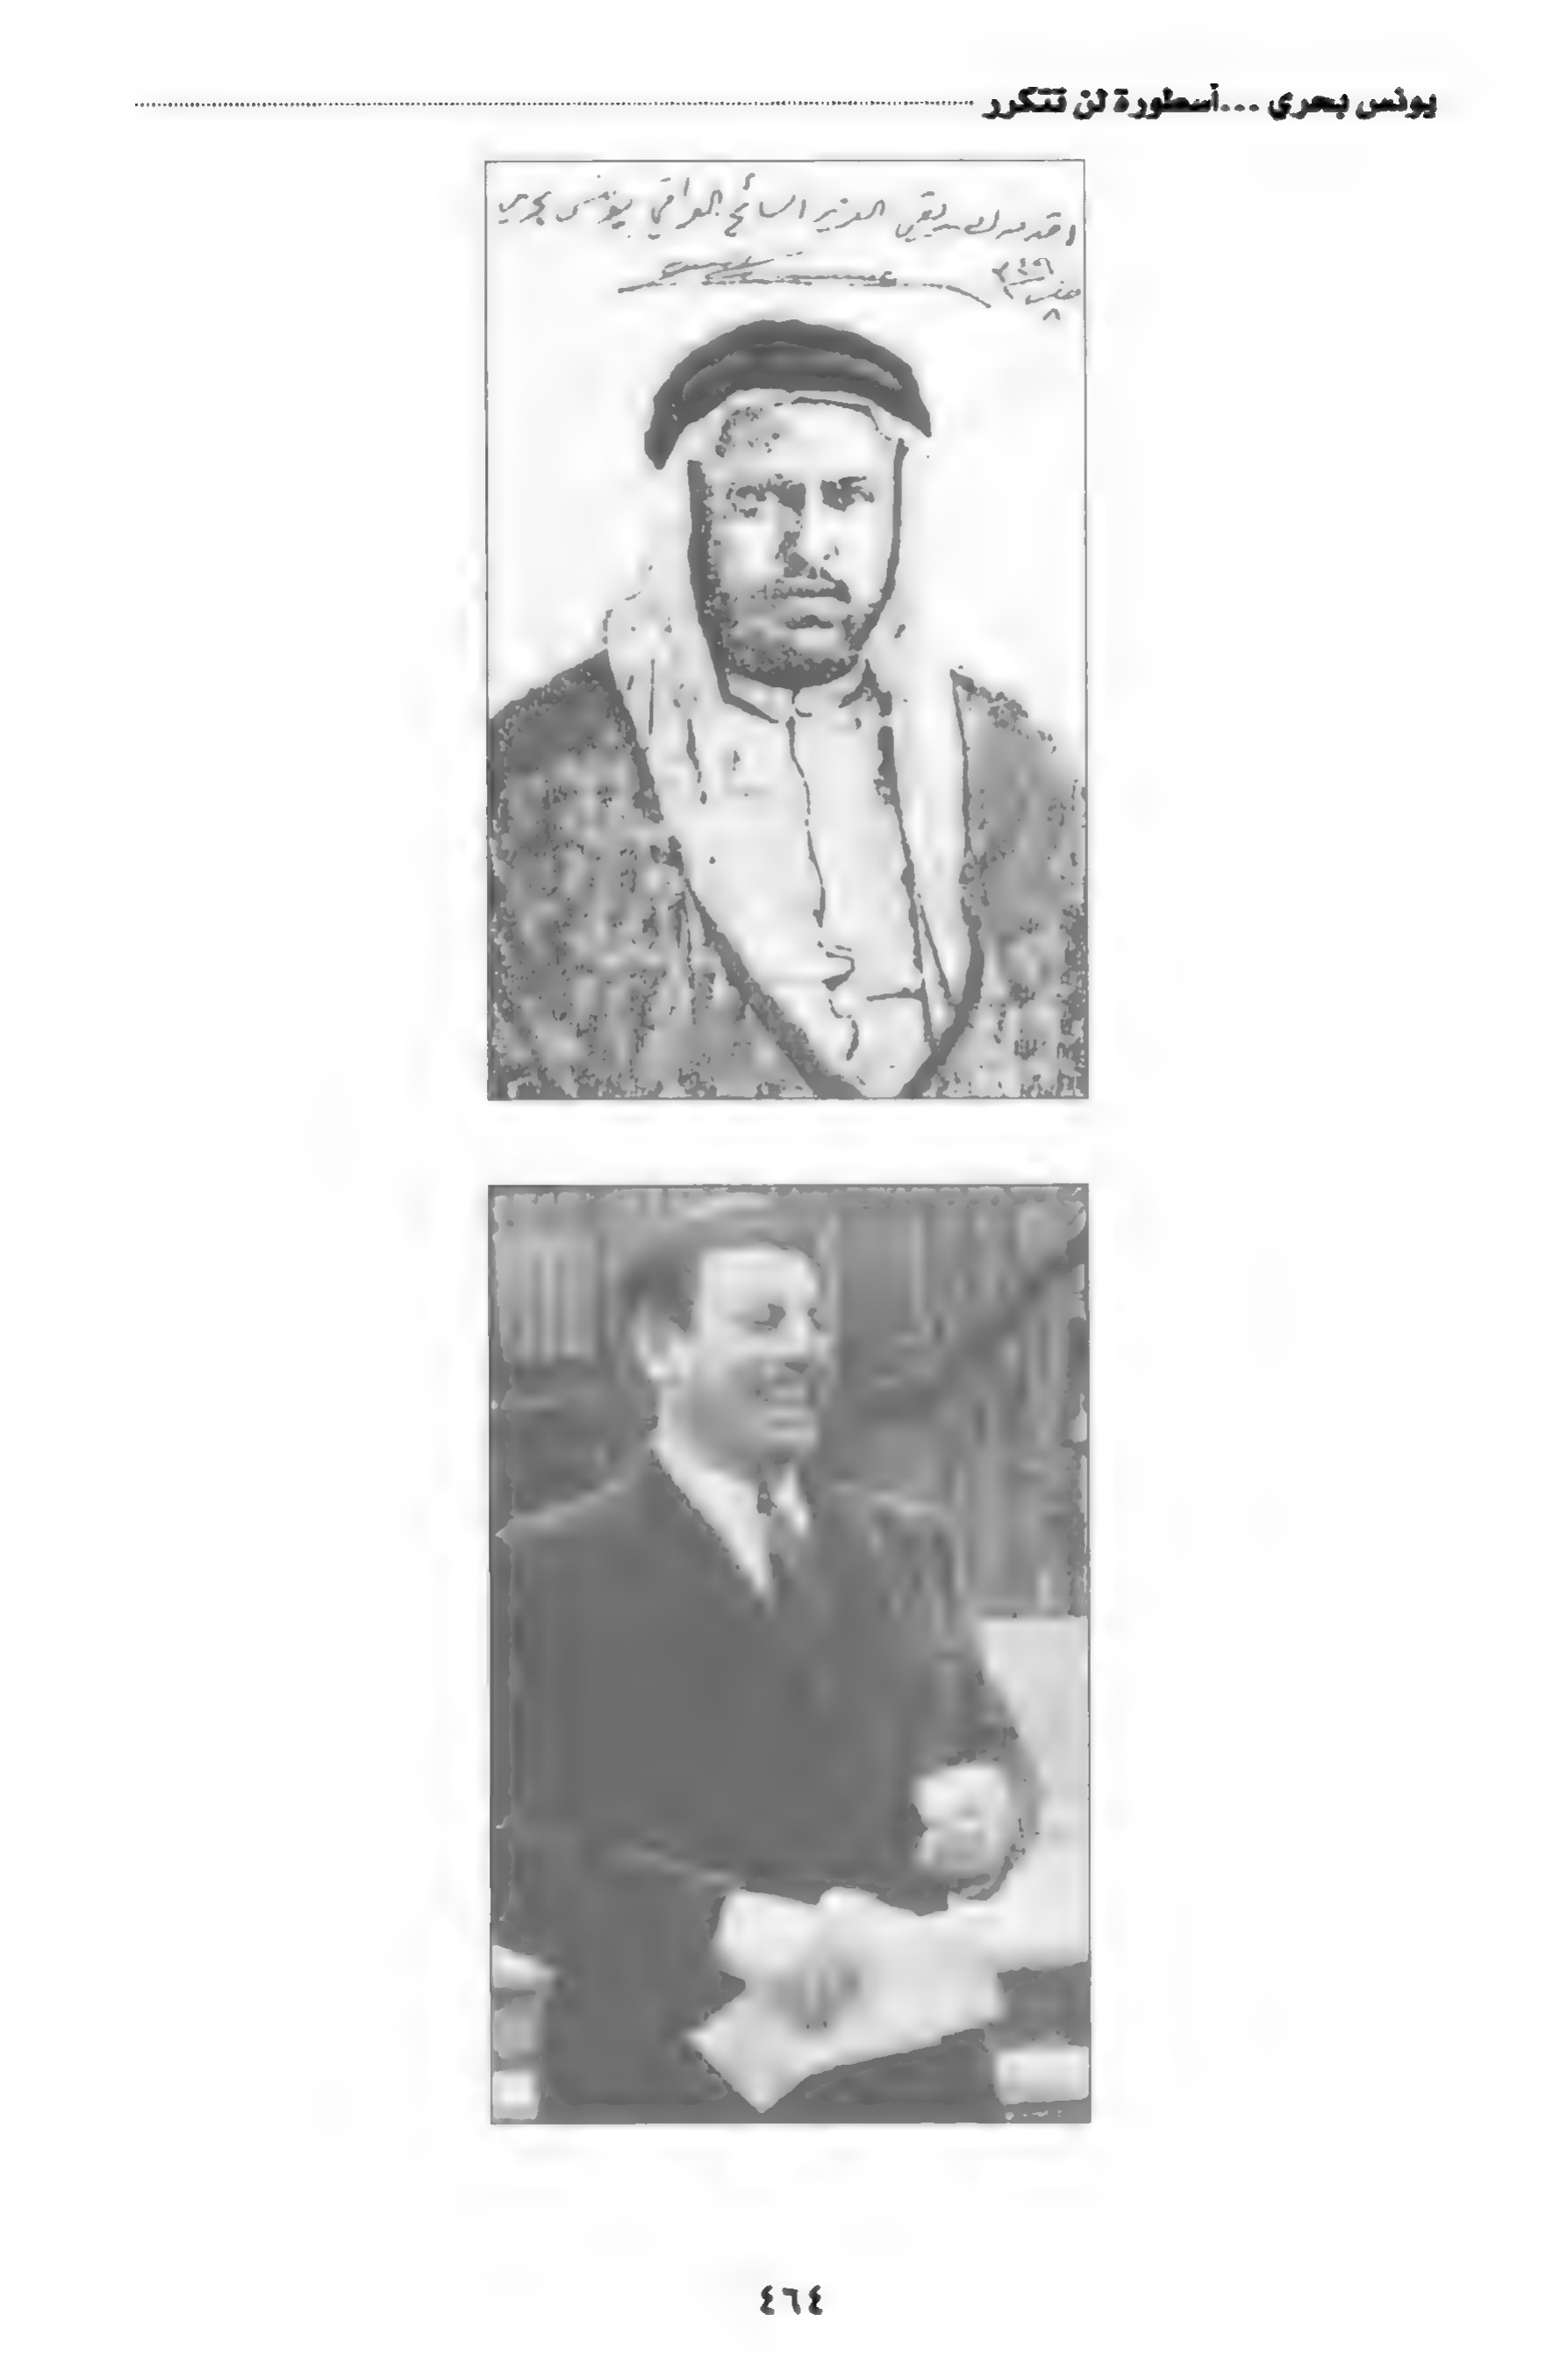 يونس بحري ...أسطورة لن تتكرر
اقدمه لصديقي العزيز السائح العراقي يونس بحري
٤٦٤